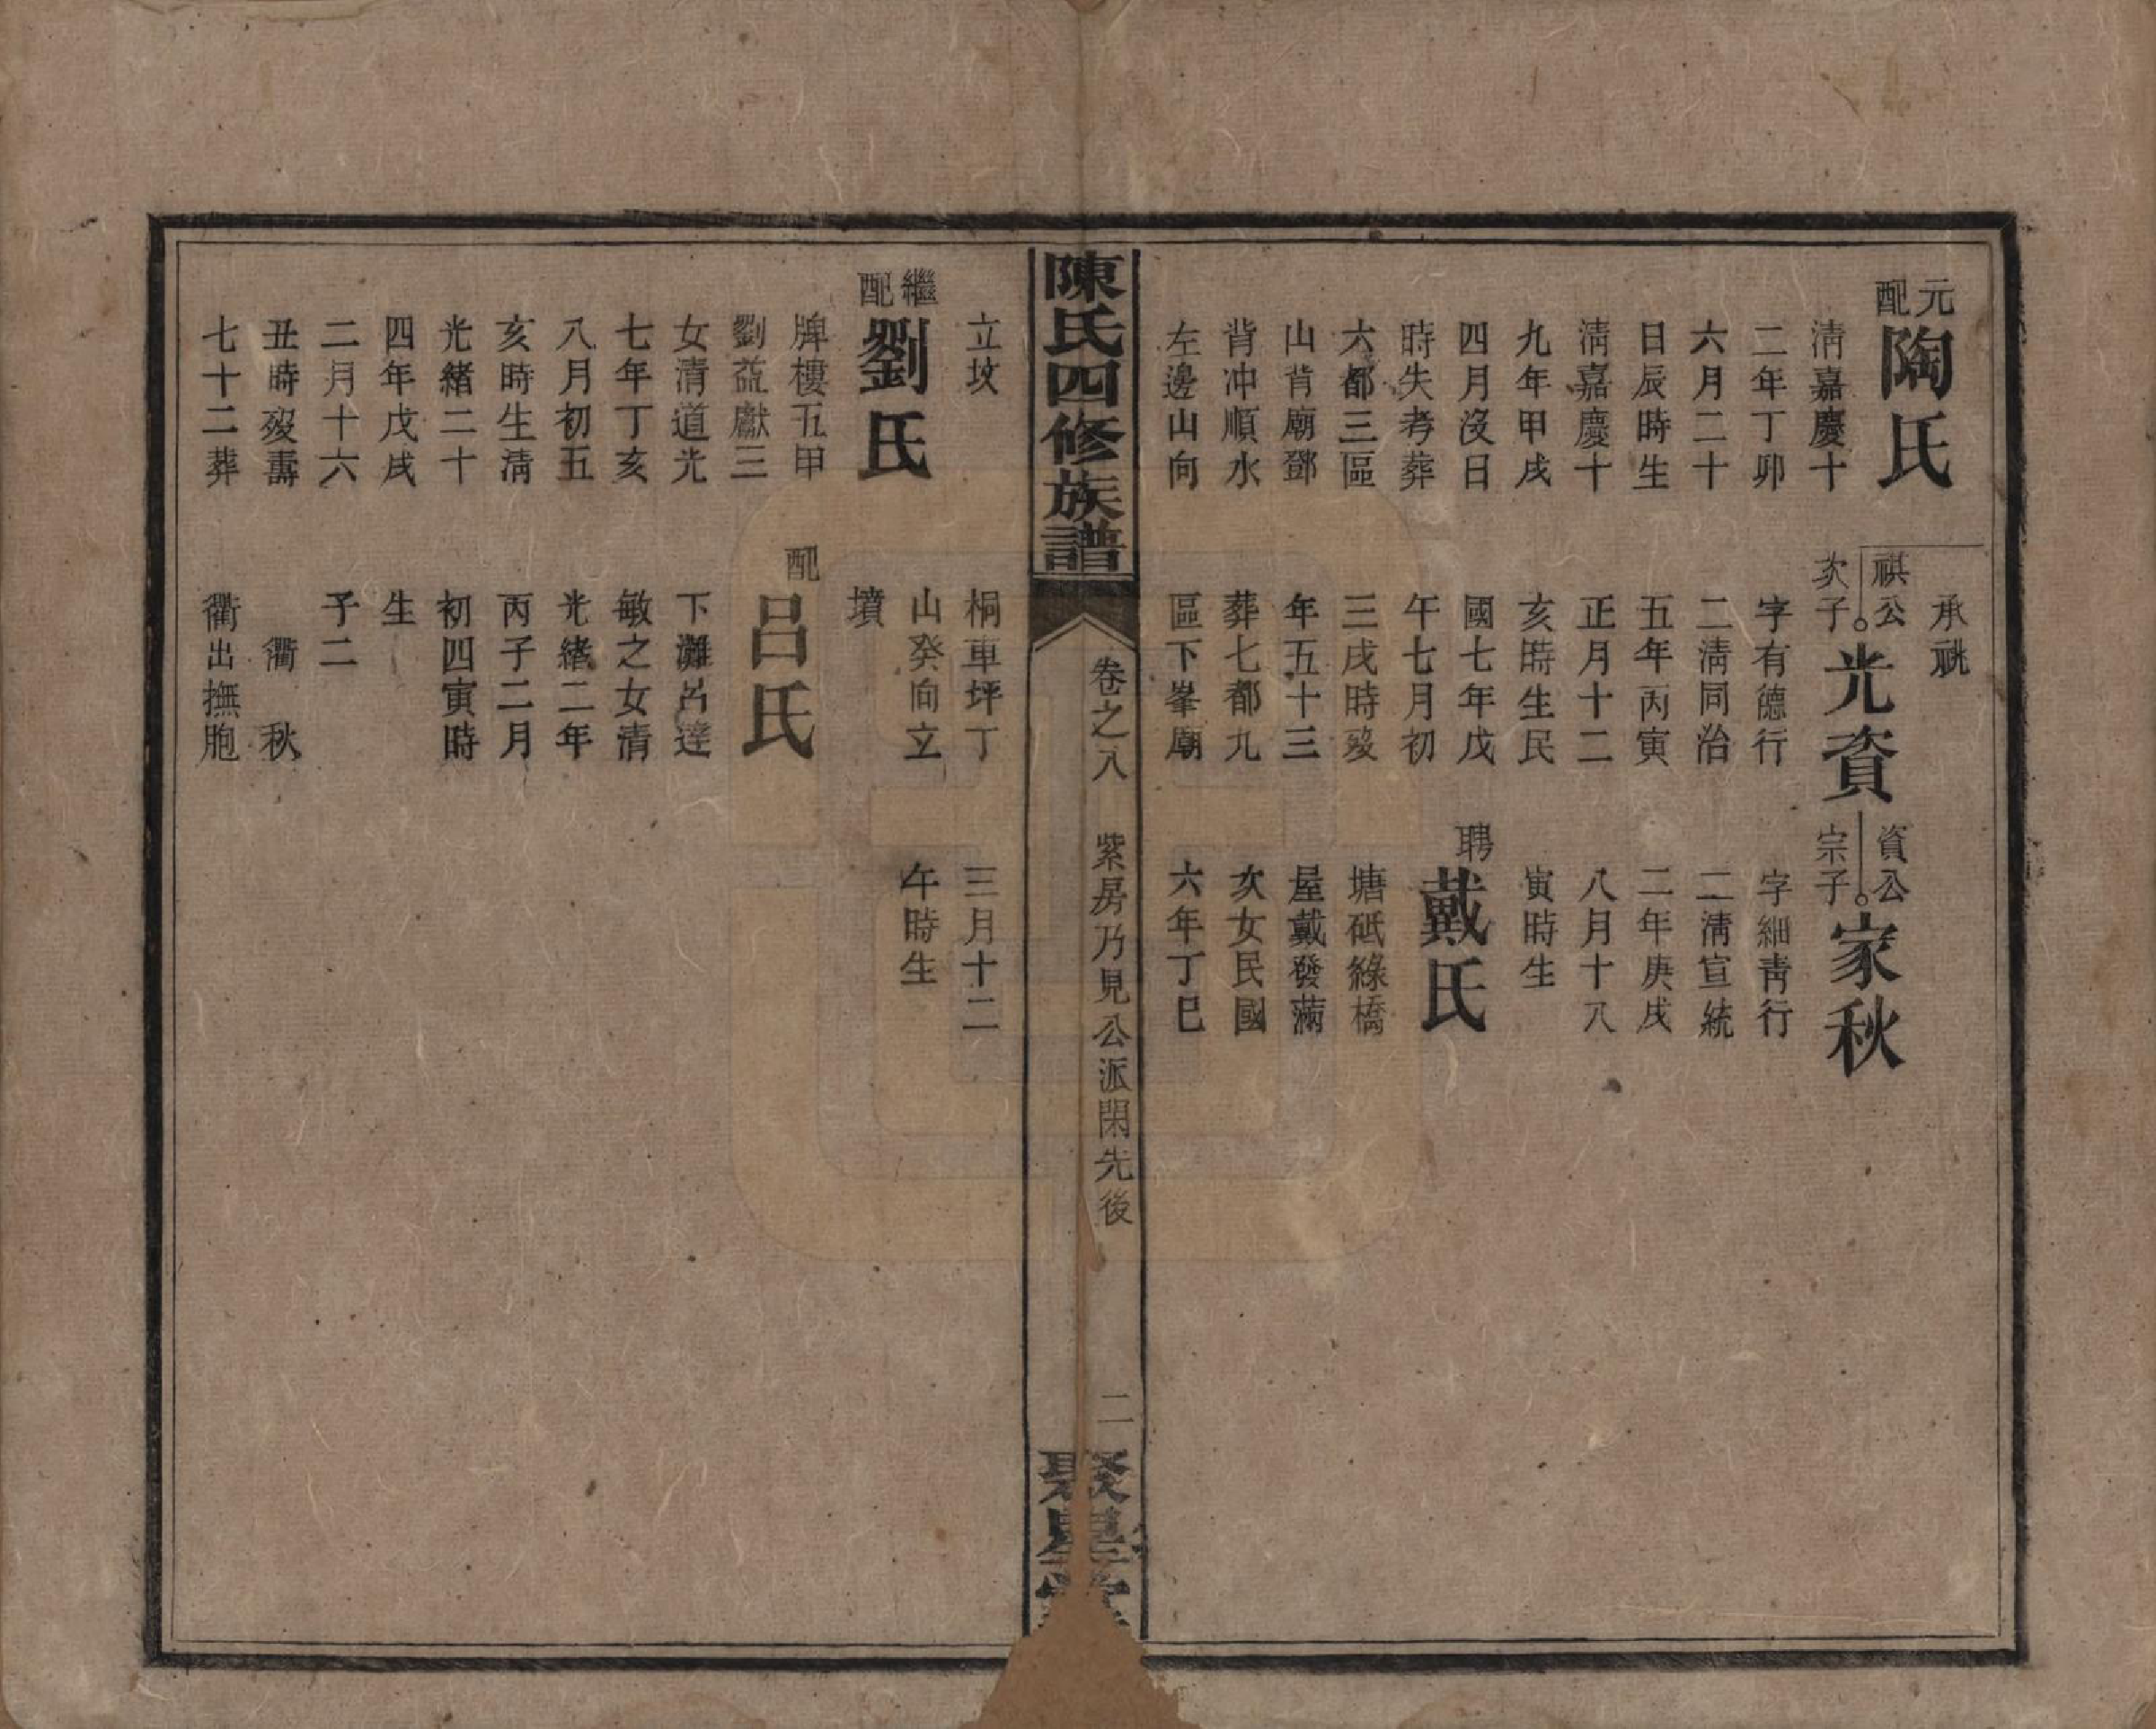 元配
陶氏
淸嘉慶十
二年丁卯
六月二十
日辰時生
淸嘉慶十
九年甲戌
四月沒日
時失考葬
六都三區
山背廟鄧
背冲順水
左邊山向
承祧
祺公
次子
光資
字有德行
二淸同治
五年丙寅
正月十二
亥時生民
國七年戊
午七月初
三戌時歿
年五十三
葬七都九
區下峯廟
資公
宗子
家秋
字細靑行
一淸宣統
二年庚戌
八月十八
寅時生
聘
戴氏
塘砥綠橋
屋戴發滿
次女民國
六年丁巳
陳氏四修族譜
卷之八 紫房乃見公派閑先後 二
聚星堂
立坟
繼配
劉氏
牌樓五甲
劉益獻三
女淸道光
七年丁亥
八月初五
亥時生淸
光緖二十
四年戊戌
二月十六
丑時歿壽
七十二葬
桐車坪丁
山癸向立
墳
配
呂氏
下灘呂達
敏之女淸
光緖二年
丙子二月
初四寅時
生
子二
衢 秋
衢出撫胞
三月十二
午時生